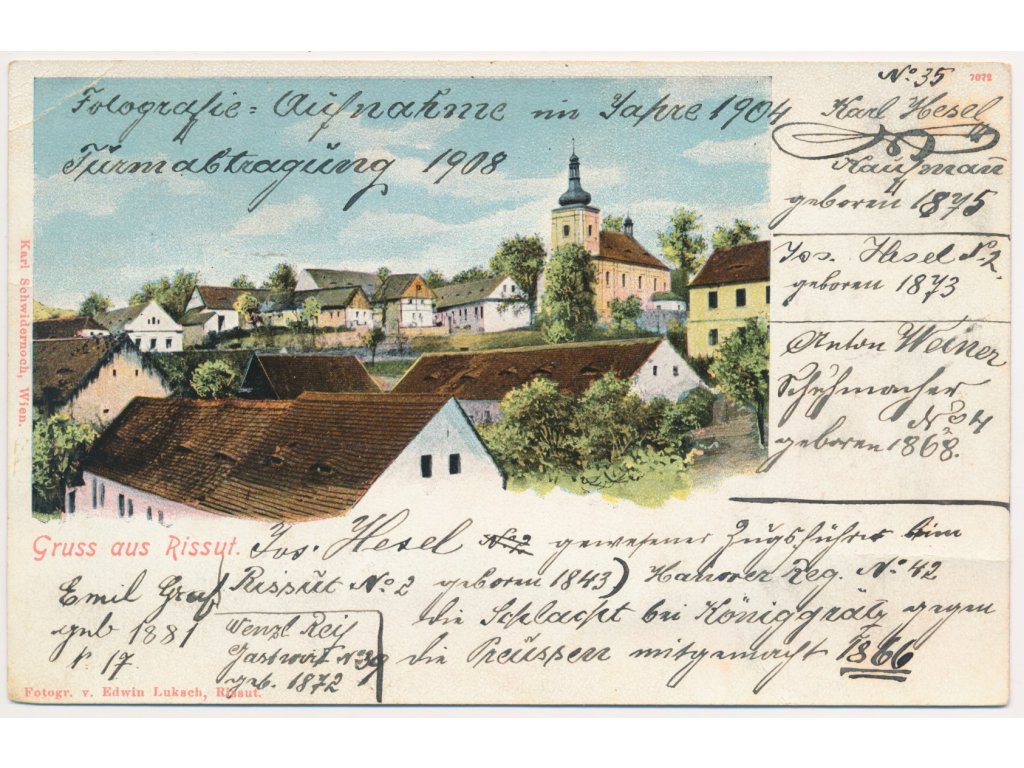 Fotografie-Aufnahme im Jahre 1904
Turmabtragung 1908
7072
No. 35
Karl Hesel
Kaufmann
geboren 1875
Jos. Hesel No. 2
geboren 1873
Anton Weiner
Schuhmacher
No
geboren 1868.
Karl Schwidernoch, Wien.
Gruss aus Rissut.
Jos. Hesel No 2 gewesener Zugsführer beim
Rissut No. 2 geboren 1843) Hanover Reg. No. 42
die Schlacht bei Königgrätz gegen
die Preussen mitgemacht 1866
Emil Graf
geb 1881
N 17.
Wenzl Reif
Gastwirt No 39
geb. 1872
Fotogr. v. Edwin Luksch, Rissut.